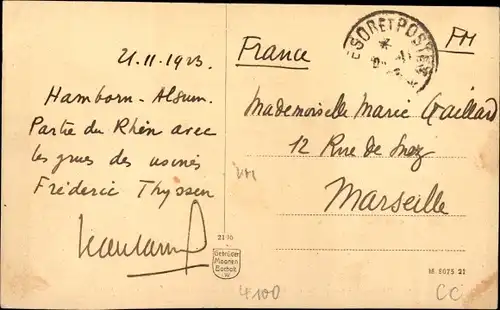 21.11.1923.
Hamborn-Alsum.
Partie du Rhin avec
les grues des usines
Fréderic Thyssen
France
FM
ESORETPOSTES
Mademoiselle Marie Gaillard
12 Rue de Suez
Marseille
21 10
Gebrüder
Moonen
Bocholt
i.W.
18 5075 21
4100
CC